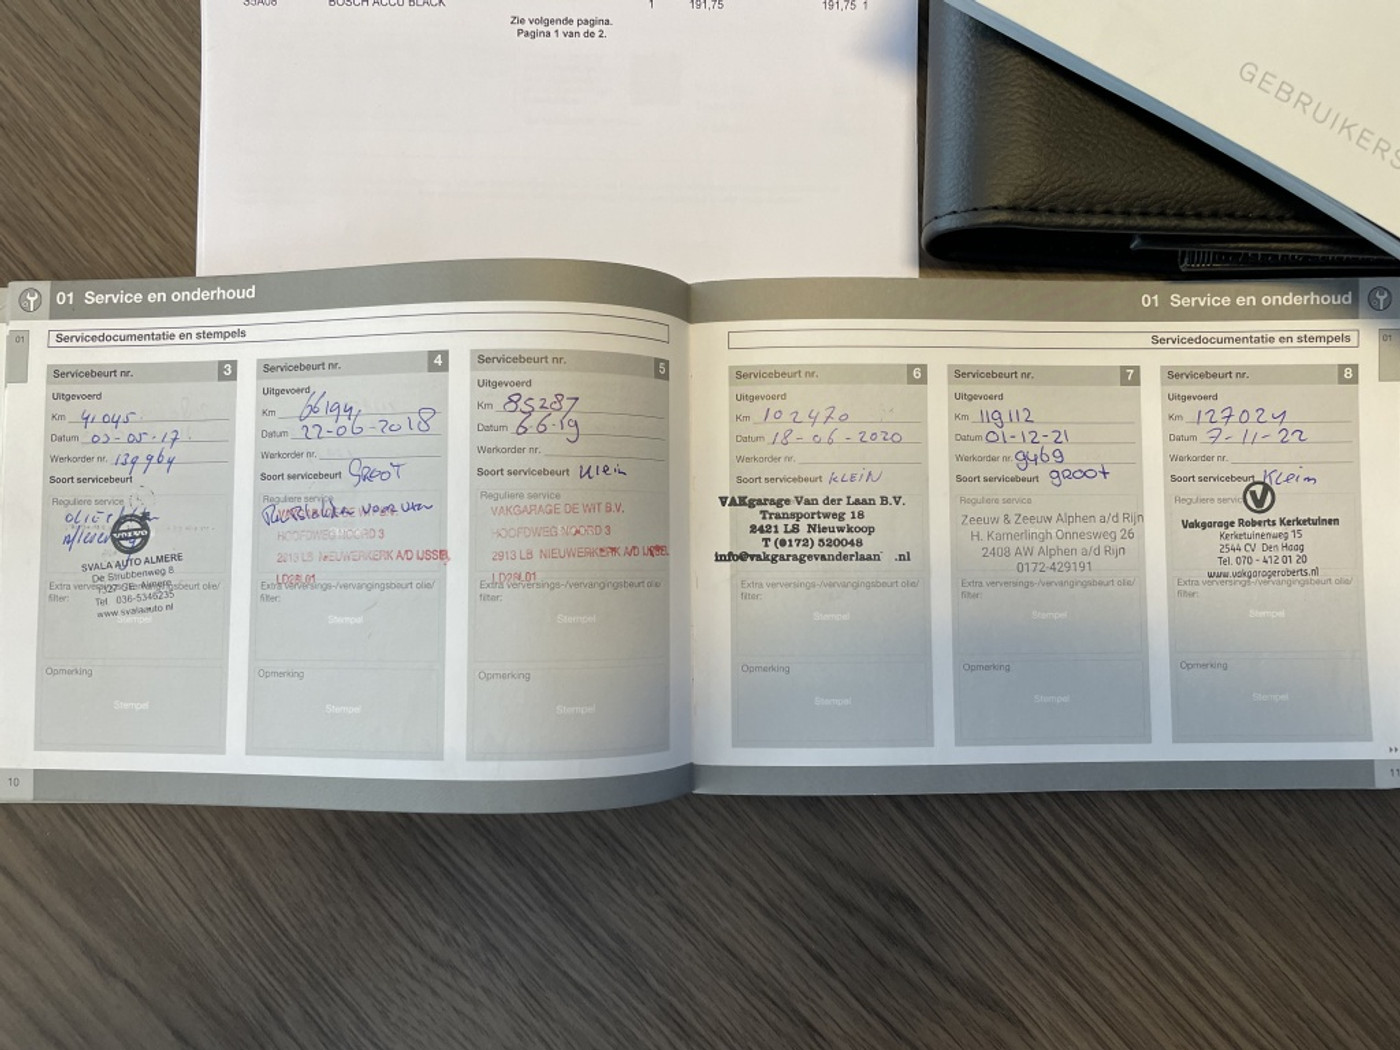 35A08 BOSCH ACCU BLACK 1 191,75 191,75 1
Zie volgende pagina.
Pagina 1 van de 2.
GEBRUIKERS
01 Service en onderhoud
01
Servicedocumentatie en stempels
Servicebeurt nr. 3
Uitgevoerd
Km 41045
Datum 03-05-17
Werkorder nr. 139964
Soort servicebeurt
Reguliere service
VOLVO
SVALA AUTO ALMERE
De Strubbenweg 8
1327 GE Almere
Extra verversings-/vervangingsbeurt olie/
filter:
Tel. 036-5346235
www.svalaauto.nl
Stempel
Opmerking
Stempel
Servicebeurt nr. 4
Uitgevoerd
Km 66194
Datum 22-06-2018
Werkorder nr.
Soort servicebeurt GROOT
Reguliere service
Remblokken voor
HOOFDWEG NOORD 3
2913 LB NIEUWERKERK A/D IJSSEL
LD28L01
Extra verversings-/vervangingsbeurt olie/
filter:
Stempel
Opmerking
Stempel
Servicebeurt nr. 5
Uitgevoerd
Km 85287
Datum 6-6-19
Werkorder nr.
Soort servicebeurt Klein
Reguliere service
VAKGARAGE DE WIT B.V.
HOOFDWEG NOORD 3
2913 LB NIEUWERKERK A/D IJSSEL
LD28L01
Extra verversings-/vervangingsbeurt olie/
filter:
Stempel
Opmerking
Stempel
10
01 Service en onderhoud
01
Servicedocumentatie en stempels
Servicebeurt nr. 6
Uitgevoerd
Km 102470
Datum 18-06-2020
Werkorder nr.
Soort servicebeurt KLEIN
VAKgarage Van der Laan B.V.
Transportweg 18
2421 LS Nieuwkoop
T (0172) 520048
info@vakgaragevanderlaan .nl
Extra verversings-/vervangingsbeurt olie/
filter:
Stempel
Opmerking
Stempel
Servicebeurt nr. 7
Uitgevoerd
Km 119112
Datum 01-12-21
Werkorder nr. 9469
Soort servicebeurt groot
Reguliere service
Zeeuw & Zeeuw Alphen a/d Rijn
H. Kamerlingh Onnesweg 26
2408 AW Alphen a/d Rijn
0172-429191
Extra verversings-/vervangingsbeurt olie/
filter:
Stempel
Opmerking
Stempel
Servicebeurt nr. 8
Uitgevoerd
Km 127024
Datum 7-11-22
Werkorder nr.
Soort servicebeurt Klein
Reguliere service
V
Vakgarage Roberts Kerketuinen
Kerketuinenweg 15
2544 CV Den Haag
Tel. 070 - 412 01 20
www.vakgarageroberts.nl
Extra verversings-/vervangingsbeurt olie/
filter:
Stempel
Opmerking
Stempel
11